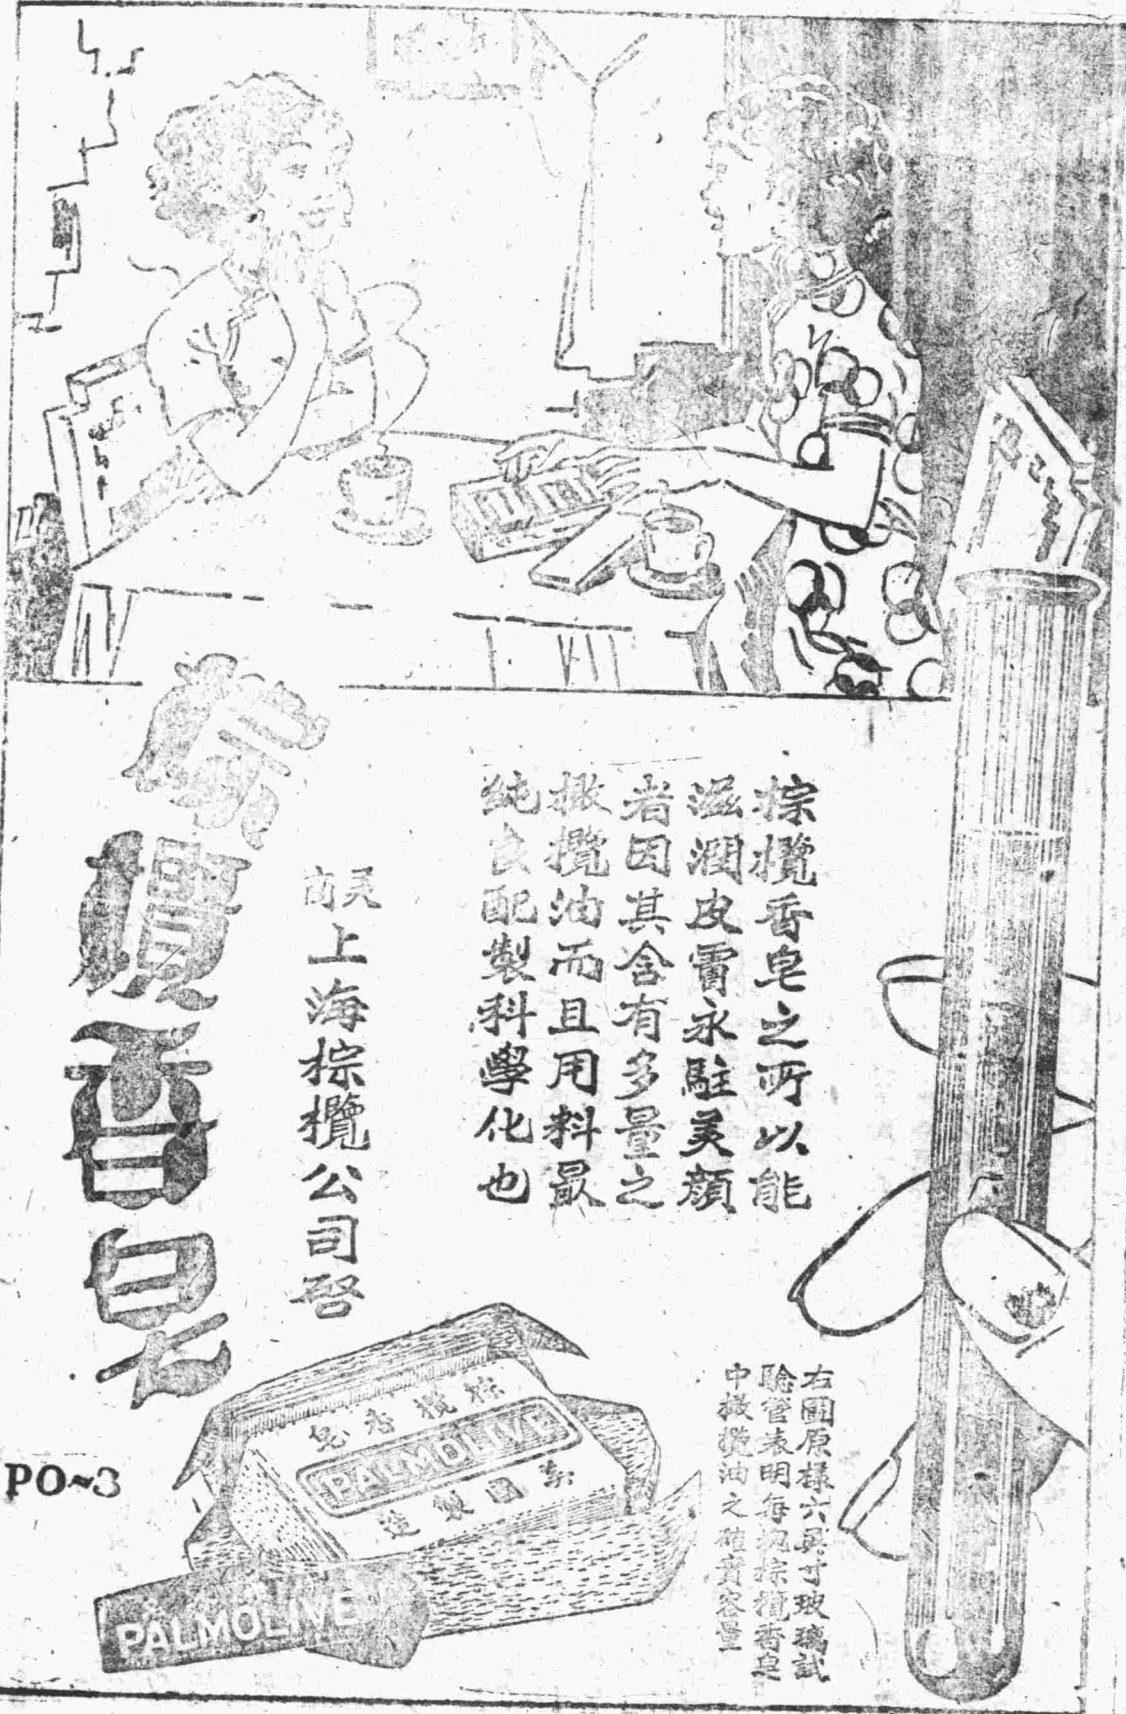 棕欖香皂之所以能
滋潤皮膚永駐美顏
者因其含有多量之
橄欖油而且用料最
純良配製科學化也
美商
上海棕欖公司啓
棕欖香皂
右圖原樣六英寸玻璃試
驗管表明每塊棕欖香皂
中橄欖油之確實容量
棕欖香皂
PALMOLIVE
美國製造
PALMOLIVE
PO~3